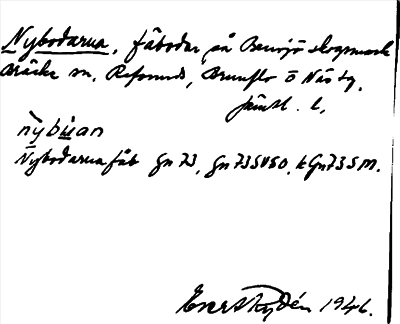 Nybodarna, fäbodar på Bensjö skogsmark
Bräcke sn, Refsunds, Brunflo o Näs tg,
Jämtl. l,
nỳbùan
Nybodarna fäb Gn 73, Gn 73SVSO, k Gn 73 SM.
Evert Rydén 1946.